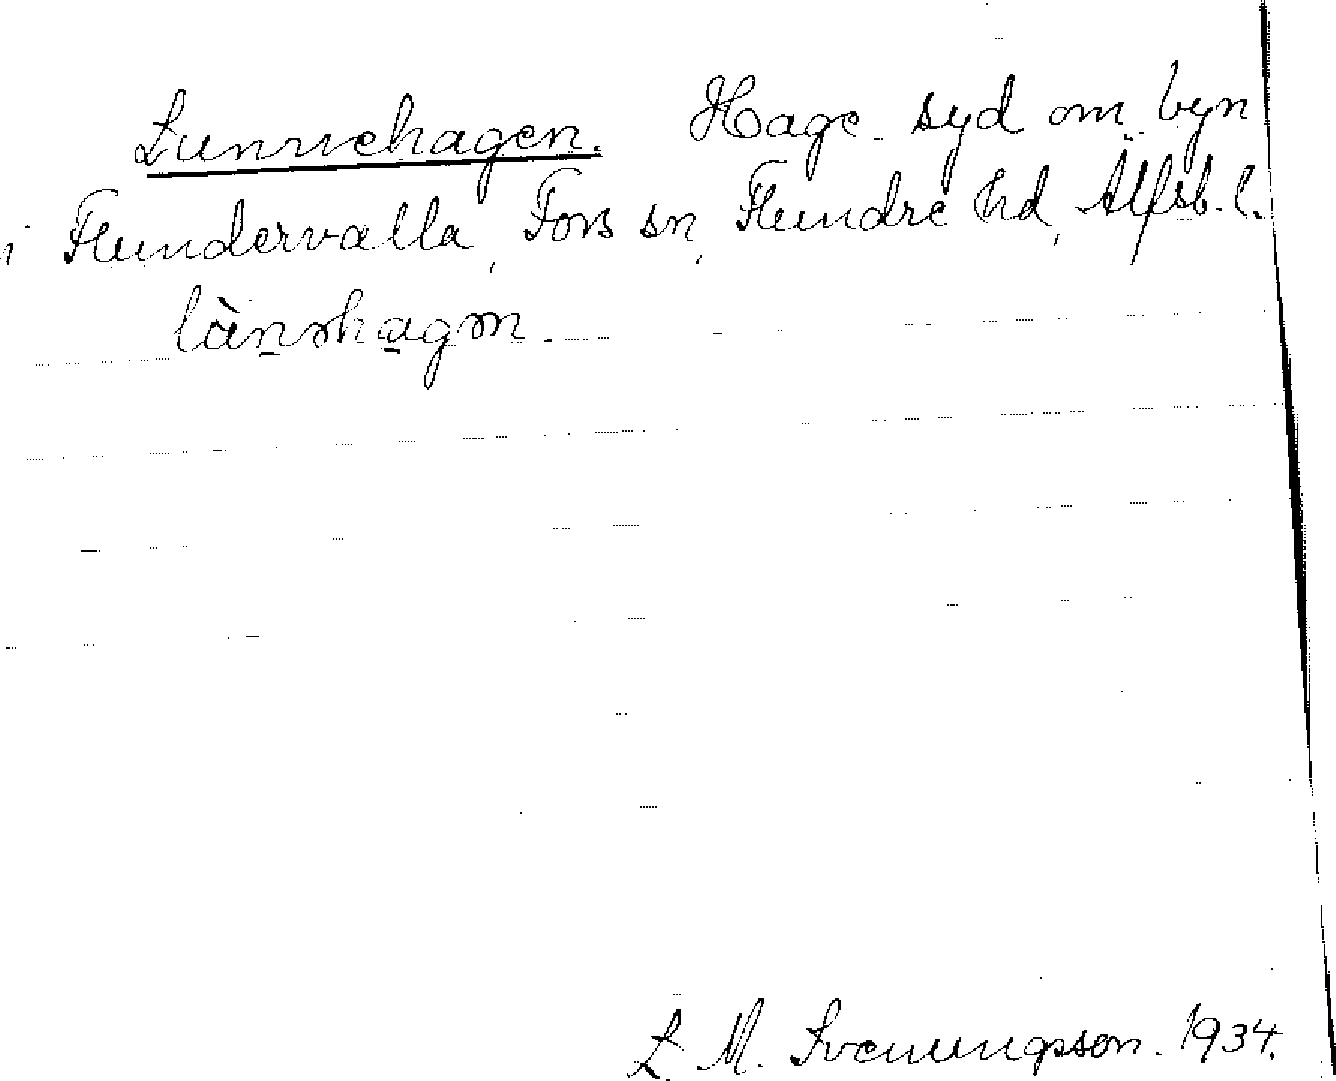 Lunnehagen. Hage syd om byn
i Flundervalla, Fors sn, Flundre hd, Älfsb. l.
L. M. Svenungsson. 1934.